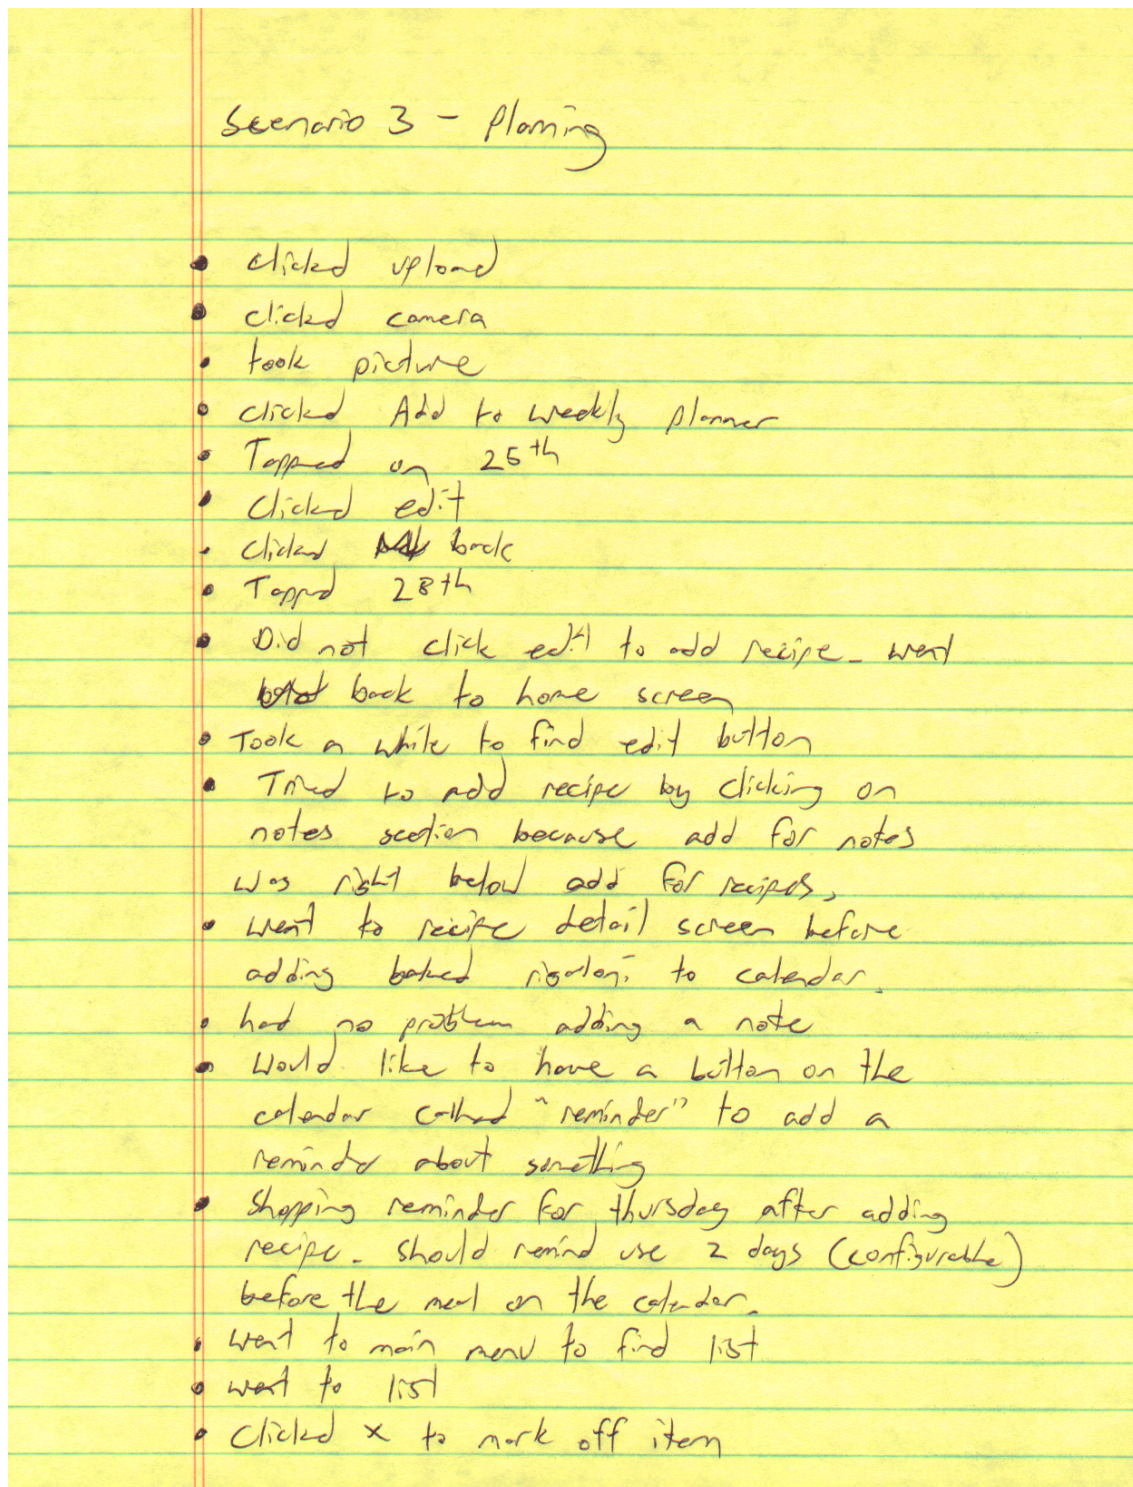 Scenario 3 - Planning
• clicked upload
• clicked camera
• took picture
• clicked Add to weekly planner
• Tapped on 25th
• Clicked edit
• clicked back
• Tapped 28th
• Did not click edit to add recipe - went
back to home screen
• Took a while to find edit button
• Tried to add recipe by clicking on
notes section because add for notes
was right below add for recipes.
• went to recipe detail screen before
adding baked rigatoni to calendar.
• had no problem adding a note
• Would like to have a button on the
calendar called "reminder" to add a
reminder about something
• Shopping reminder for thursday after adding
recipe - should remind use 2 days (configurable)
before the meal on the calendar.
• went to main menu to find list
• went to list
• Clicked x to mark off item